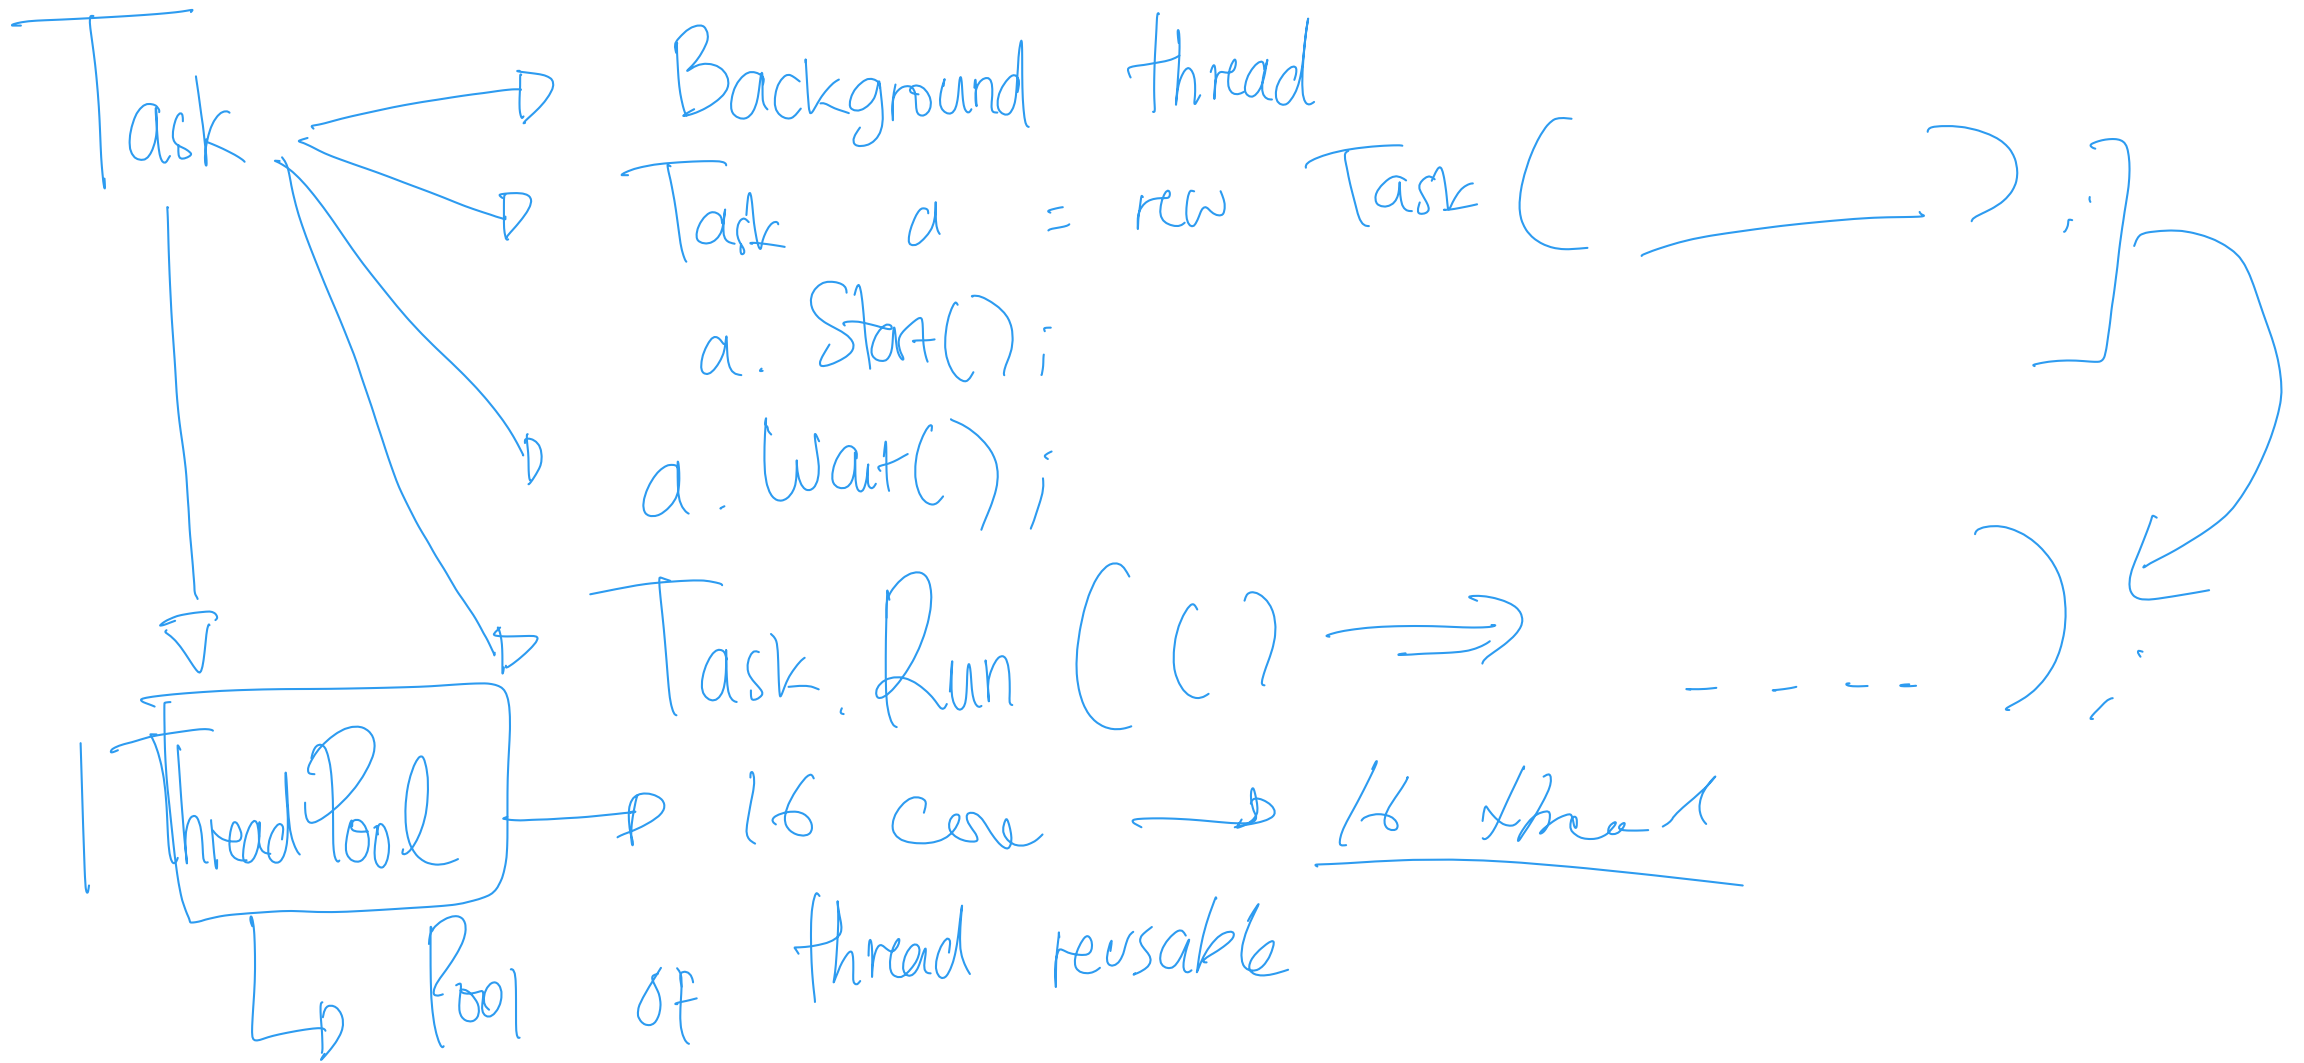 Task
Background thread
Task a = new Task( ____ );
a. Start();
a. Wait();
Task.Run(() => ---- );
ThreadPool
16 core
16 thread
Pool of thread reusable